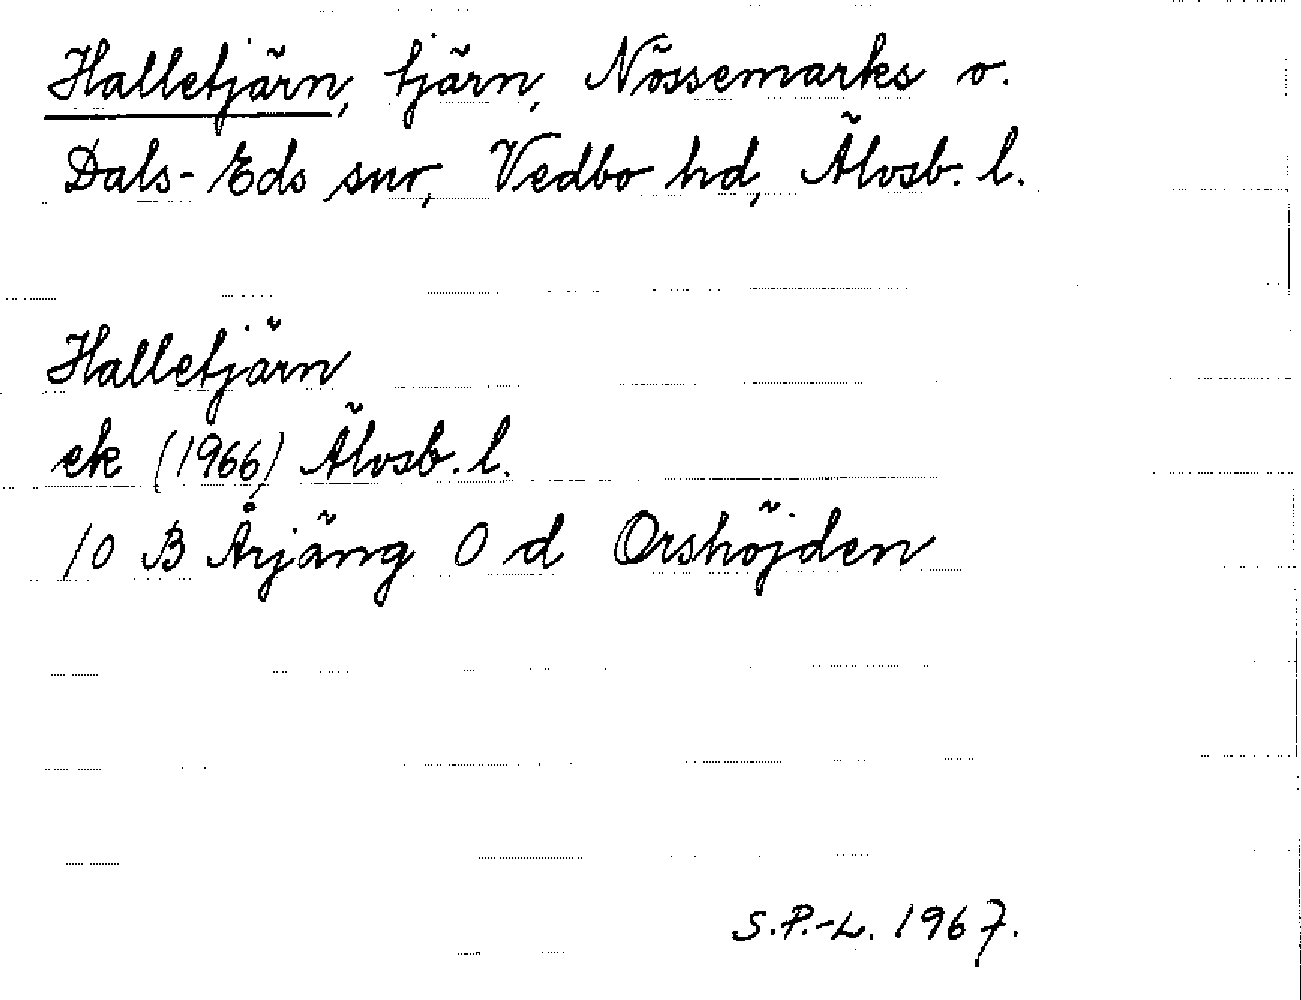 Halletjärn, tjärn, Nössemarks o.
Dals-Eds snr, Vedbo hd, Älvsb. l.
Halletjärn
ek (1966) Älvsb. l.
10 B Årjäng 0 d Orshöjden
S.P.-L. 1967.